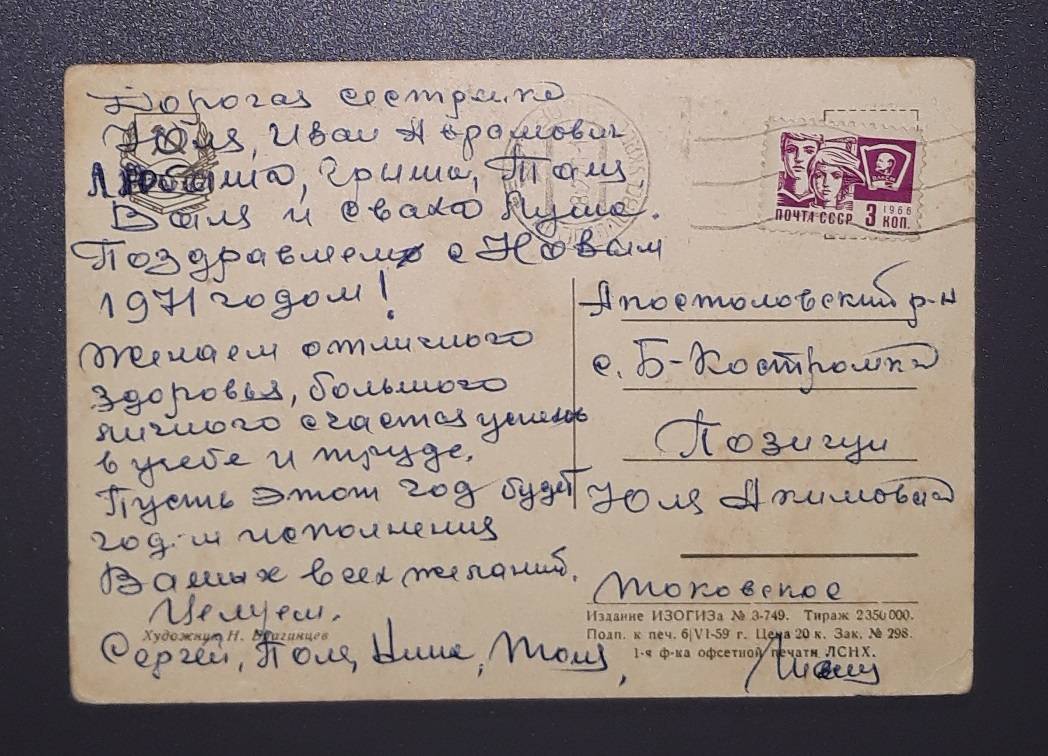 Дорогая сестрица
Юля, Иван Абрамович
Гриша, Толя
Валя и сваха Луша.
Поздравляем с Новым
1971 годом!
Желаем отличного
здоровья, большого
личного счастья успехов
в учебе и труде.
Пусть этот год будет
год-м исполнения
Ваших всех желаний.
Целуем.
Сергей, Поля, Нина, Толя,
ПОЧТА СССР 3 КОП.
1966
ВЛКСМ
Апостоловский р-н
с. Б-Костромка
Позигун
Юля Акимовна
Токовское
Художник Н. Брагинцев
Издание ИЗОГИЗа № 3-749. Тираж 2350000.
Подп. к печ. 6/VI-59 г. Цена 20 к. Зак. № 298.
1-я ф-ка офсетной печати ЛСНХ.